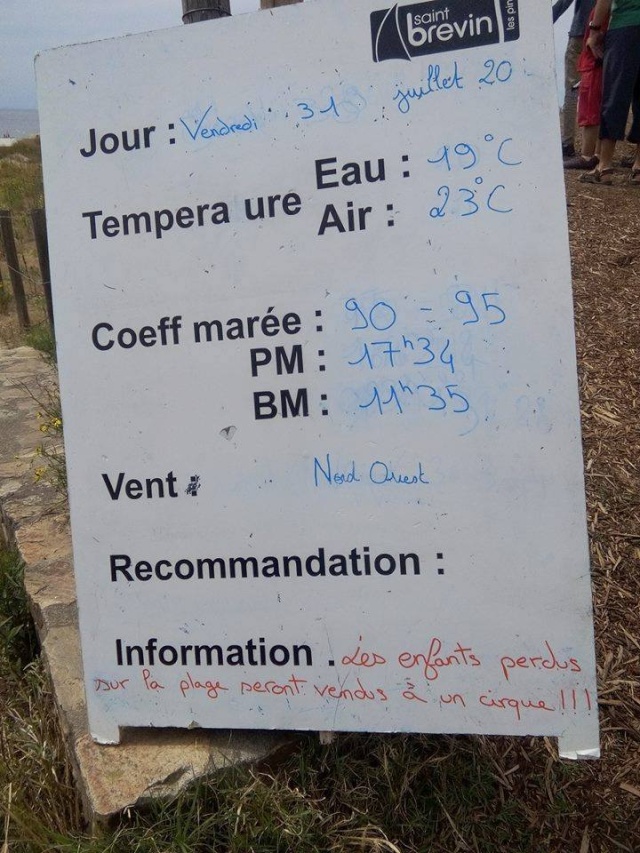 saint
brevin
les pin
Jour : Vendredi 31 juillet 20
Tempera ure
Eau : 19°C
Air : 23°C
Coeff marée : 90 - 95
PM : 17h34
BM : 11h35
Vent : Nord Ouest
Recommandation :
Information . Les enfants perdus
sur la plage seront vendus à un cirque !!!